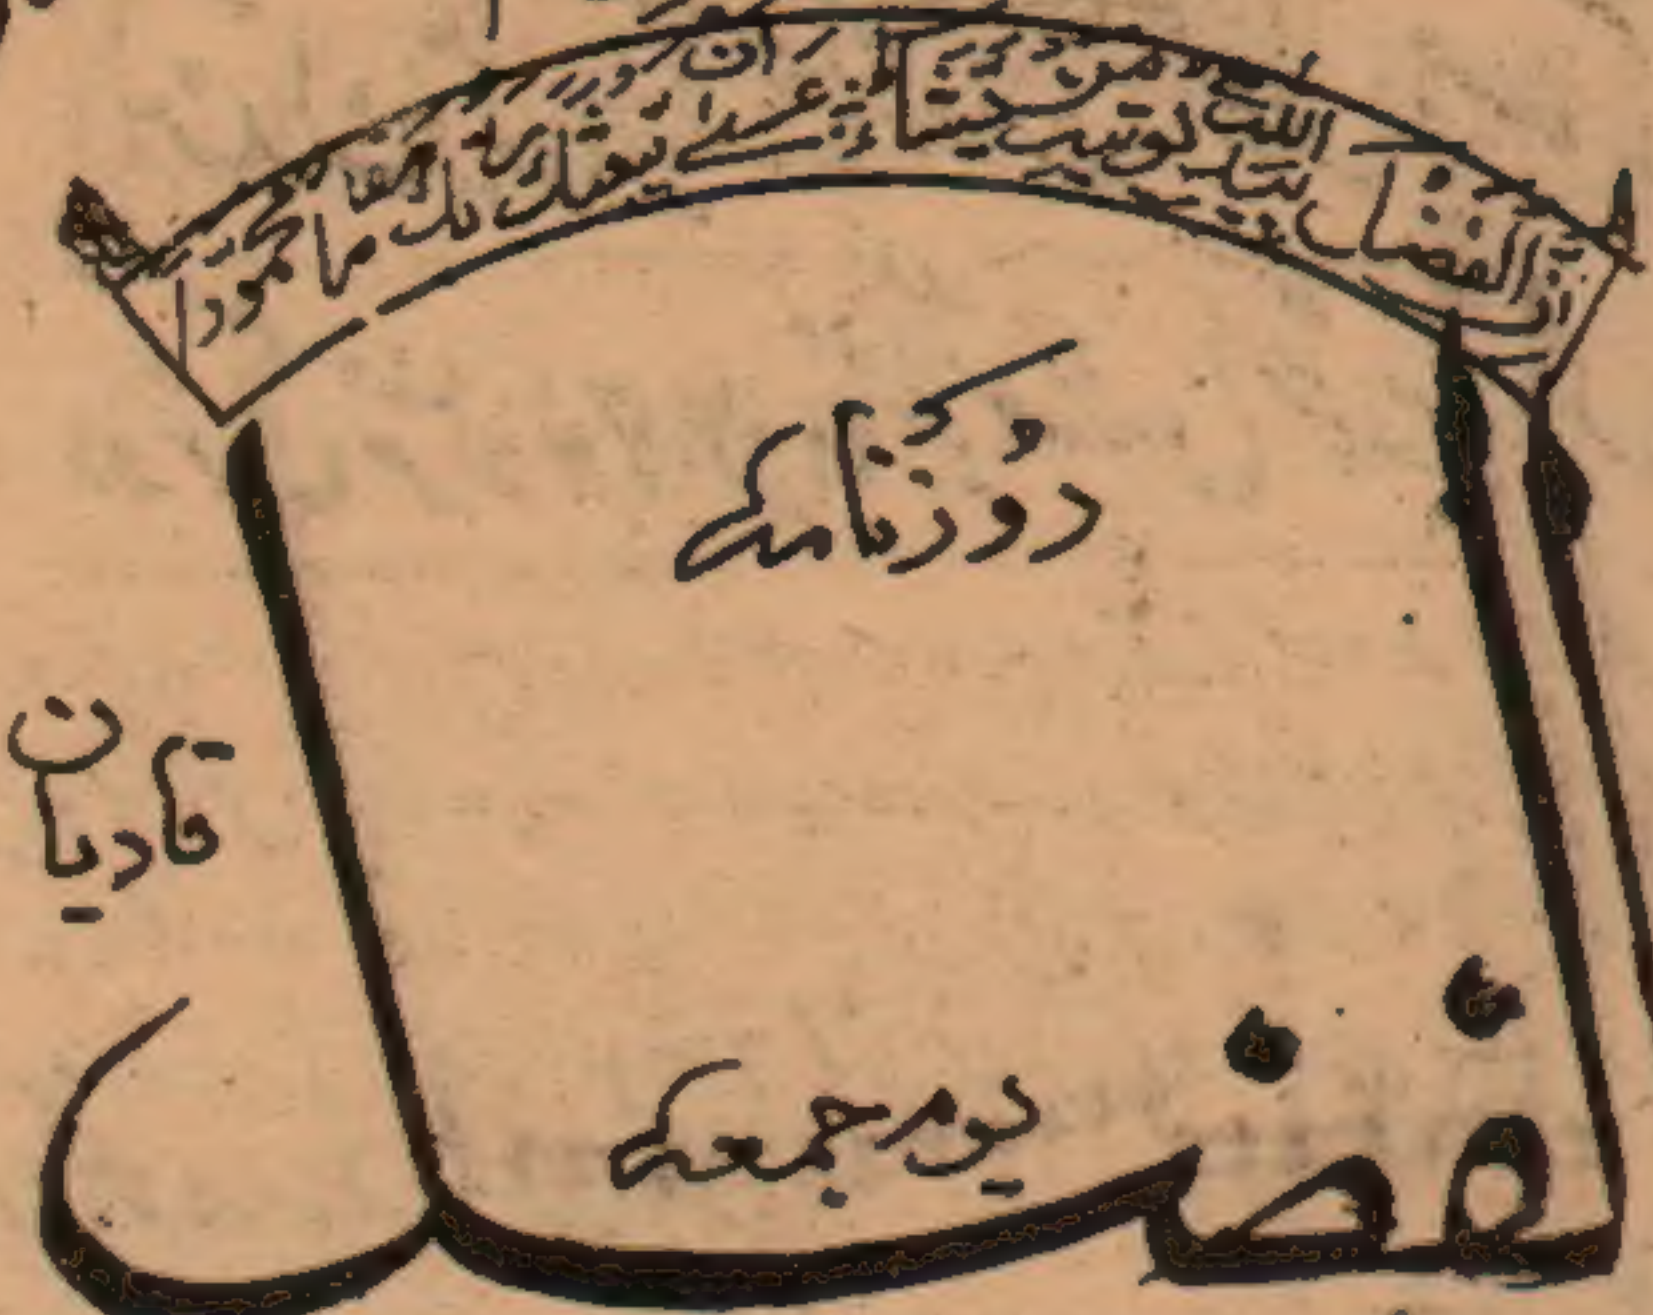 ان الفضل بید اللہ یؤتیہ من یشاء عسیٰ ان یبعثک ربک مقاما محمودا
روزنامہ
قادیان
یوم جمعہ
الفضل